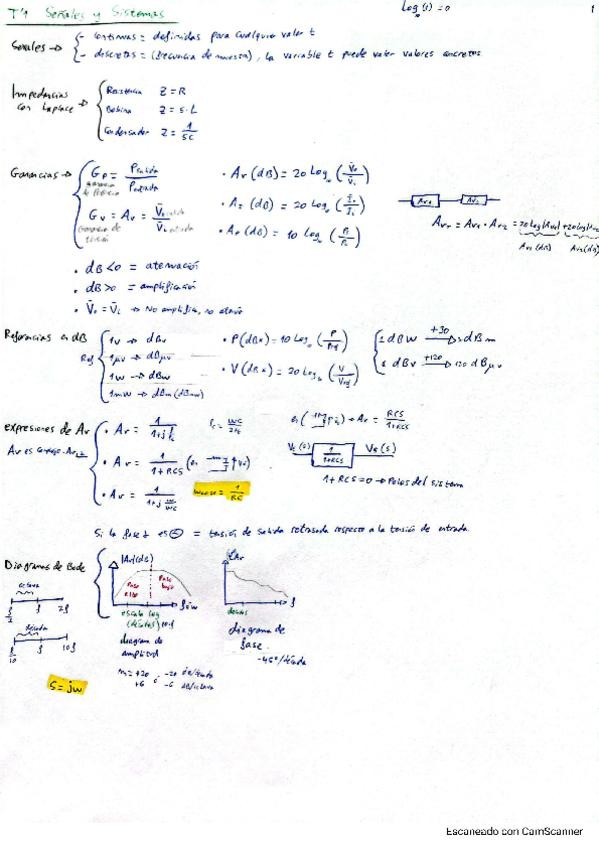 T4 Señales y Sistemas
Log (1) = 0
1
Señales → - continuas = definidas para cualquier valor t
- discretas = (frecuencia de muestreo), la variable t puede valer valores concretos
Impedancias con Laplace →
Resistencia Z = R
Bobina Z = S·L
Condensador Z = 1/SC
Ganancias →
Gp = Psalida / Pentrada
ganancia de Potencia
Gv = Av = Vo salida / Vi entrada
ganancia de tensión
· Av (dB) = 20 Log (Vo/Vi)
· AI (dB) = 20 Log (Io/Ii)
· Ap (dB) = 10 Log
Av1 Av2
AvT = Av1 · Av2 = 20 log |Av1| + 20 log
Av1 (dB) Av2 (dB)
· dB < 0 = atenuación
· dB > 0 = amplificación
· Vo = Vi → No amplifica, no atenúa
Referencias en dB
Ref
1V → dBv
1μV → dBμv
1W → dBw
1mW → dBm (dBmw)
· P (dBx) = 10 Log (P/Pref)
· V (dBx) = 20 Log (V/Vref)
dBW +30 → dBm
dBv +120 → 120 dBμv
expresiones de Av
· Av = 1 / 1+j
· Av = 1 / 1+RCS (en
· Av = 1 / 1+j W/Wc
= 1/RC
Av = RCS / 1+RCS
Vi (s) 1 / 1+RCS Vo (s)
1+RCS = 0 → Polos del sistema
Si la fase es ⊖ = tensión de salida retrasada respecto a la tensión de entrada.
Diagramas de Bode
octava
f/2 f 2f
década
f/10 f 10f
|Av| (dB)
Paso alto
Paso bajo
f ó w
escala log
(décadas) 10·f
diagrama de amplitud
m = +20 ó -20 dB/década
+6 -6 dB/octava
Av
f
décadas
diagrama de fase
-45º/década
S = jw
Escaneado con CamScanner